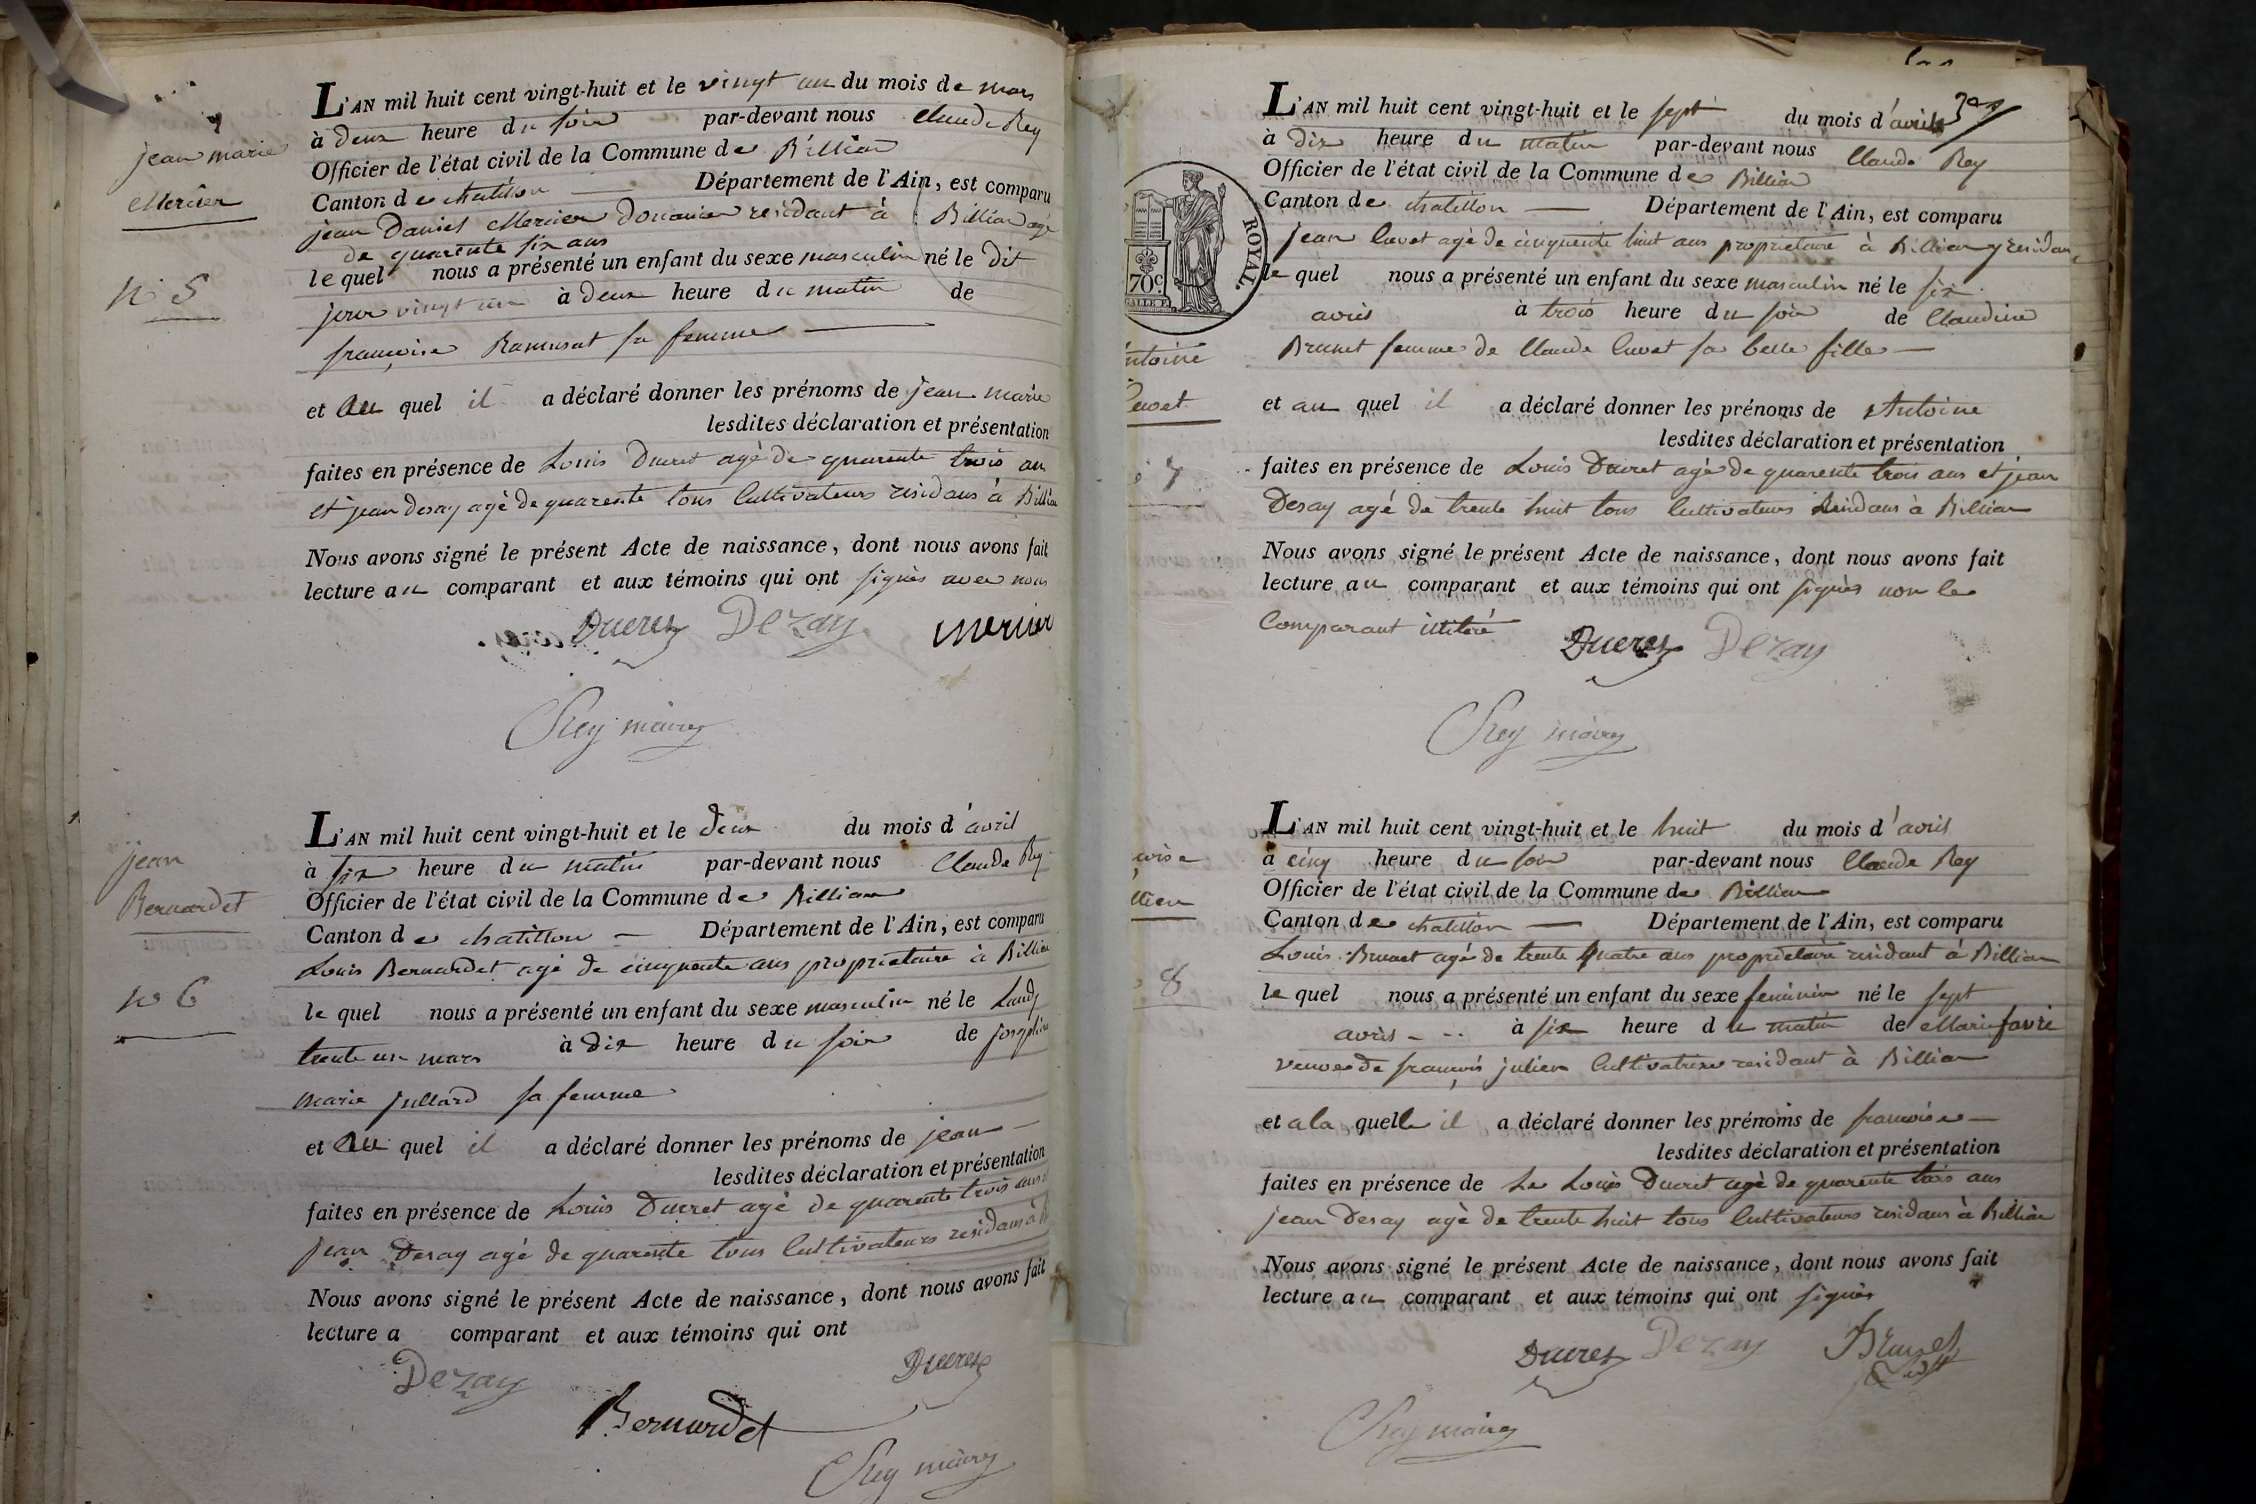 jean marie
Mercier
N° 5
L'AN mil huit cent vingt-huit et le vingt un du mois de mars
à deux heure du soir par-devant nous Claude Rey
Officier de l'état civil de la Commune de Billiat
Canton de chatillon Département de l'Ain, est comparu
jean Daniel Mercier Douanier residant à Billiat agé
de quarente six ans
le quel nous a présenté un enfant du sexe masculin né le dit
jour vingt un à deux heure du matin de
françoise Ramusat sa femme
et au quel il a déclaré donner les prénoms de jean marie
lesdites déclaration et présentation
faites en présence de Louis Ducret agé de quarente trois an
et jean desay agé de quarente tous Cultivateurs residans à Billiat
Nous avons signé le présent Acte de naissance, dont nous avons fait
lecture au comparant et aux témoins qui ont signés avec nous
Ducret Dezay Mernier
CRey maire
jean
Bernardet
N° 6
L'AN mil huit cent vingt-huit et le deux du mois d'avril
à six heure du matin par-devant nous Claude Rey
Officier de l'état civil de la Commune de Billiat
Canton de chatillon Département de l'Ain, est comparu
Louis Bernardet agé de cinquente ans propriétaire à Billiat
le quel nous a présenté un enfant du sexe masculin né le Lundy
trente un mars à dix heure du soir de josephine
marie jullard sa femme
et au quel il a déclaré donner les prénoms de jean
lesdites déclaration et présentation
faites en présence de Louis Ducret agé de quarente trois ans
jean Desay agé de quarente tous Cultivateurs residans à
Nous avons signé le présent Acte de naissance, dont nous avons fait
lecture a comparant et aux témoins qui ont
Dezay Ducret
Bernardet
CRey maire
ROYAL.
70 c.
ntoine
Cuvet
7
L'AN mil huit cent vingt-huit et le sept du mois d'avril
à dix heure du matin par-devant nous Claude Rey
Officier de l'état civil de la Commune de Billiat
Canton de chatillon Département de l'Ain, est comparu
jean Cuvet agé de cinquente huit ans propriétaire à Billiat y residan
le quel nous a présenté un enfant du sexe masculin né le six
avril à trois heure du soir de Claudine
Brunet femme de Claude Cuvet sa belle fille
et au quel il a déclaré donner les prénoms de Antoine
lesdites déclaration et présentation
faites en présence de Louis Ducret agé de quarente trois ans et jean
Desay agé de trente huit tous Cultivateurs Residans à Billiat
Nous avons signé le présent Acte de naissance, dont nous avons fait
lecture au comparant et aux témoins qui ont signés non le
Comparant illitéré
Ducret Dezay
CRey maire
oise
llien
8
L'AN mil huit cent vingt-huit et le huit du mois d'avril
à cinq heure du soir par-devant nous Claude Rey
Officier de l'état civil de la Commune de Billiat
Canton de chatillon Département de l'Ain, est comparu
Louis Brunet agé de trente quatre ans propriétaire residant à Billiat
le quel nous a présenté un enfant du sexe feminin né le sept
avril à six heure du matin de Marie favre
veuve de françois julien Cultivatrice residant à Billiat
et a la quelle il a déclaré donner les prénoms de françoise
lesdites déclaration et présentation
faites en présence de Le Louis Ducret agé de quarente trois ans
jean Desay agé de trente huit tous Cultivateurs residans à Billiat
Nous avons signé le présent Acte de naissance, dont nous avons fait
lecture au comparant et aux témoins qui ont signés
Ducret Dezay Brunet
CRey maire